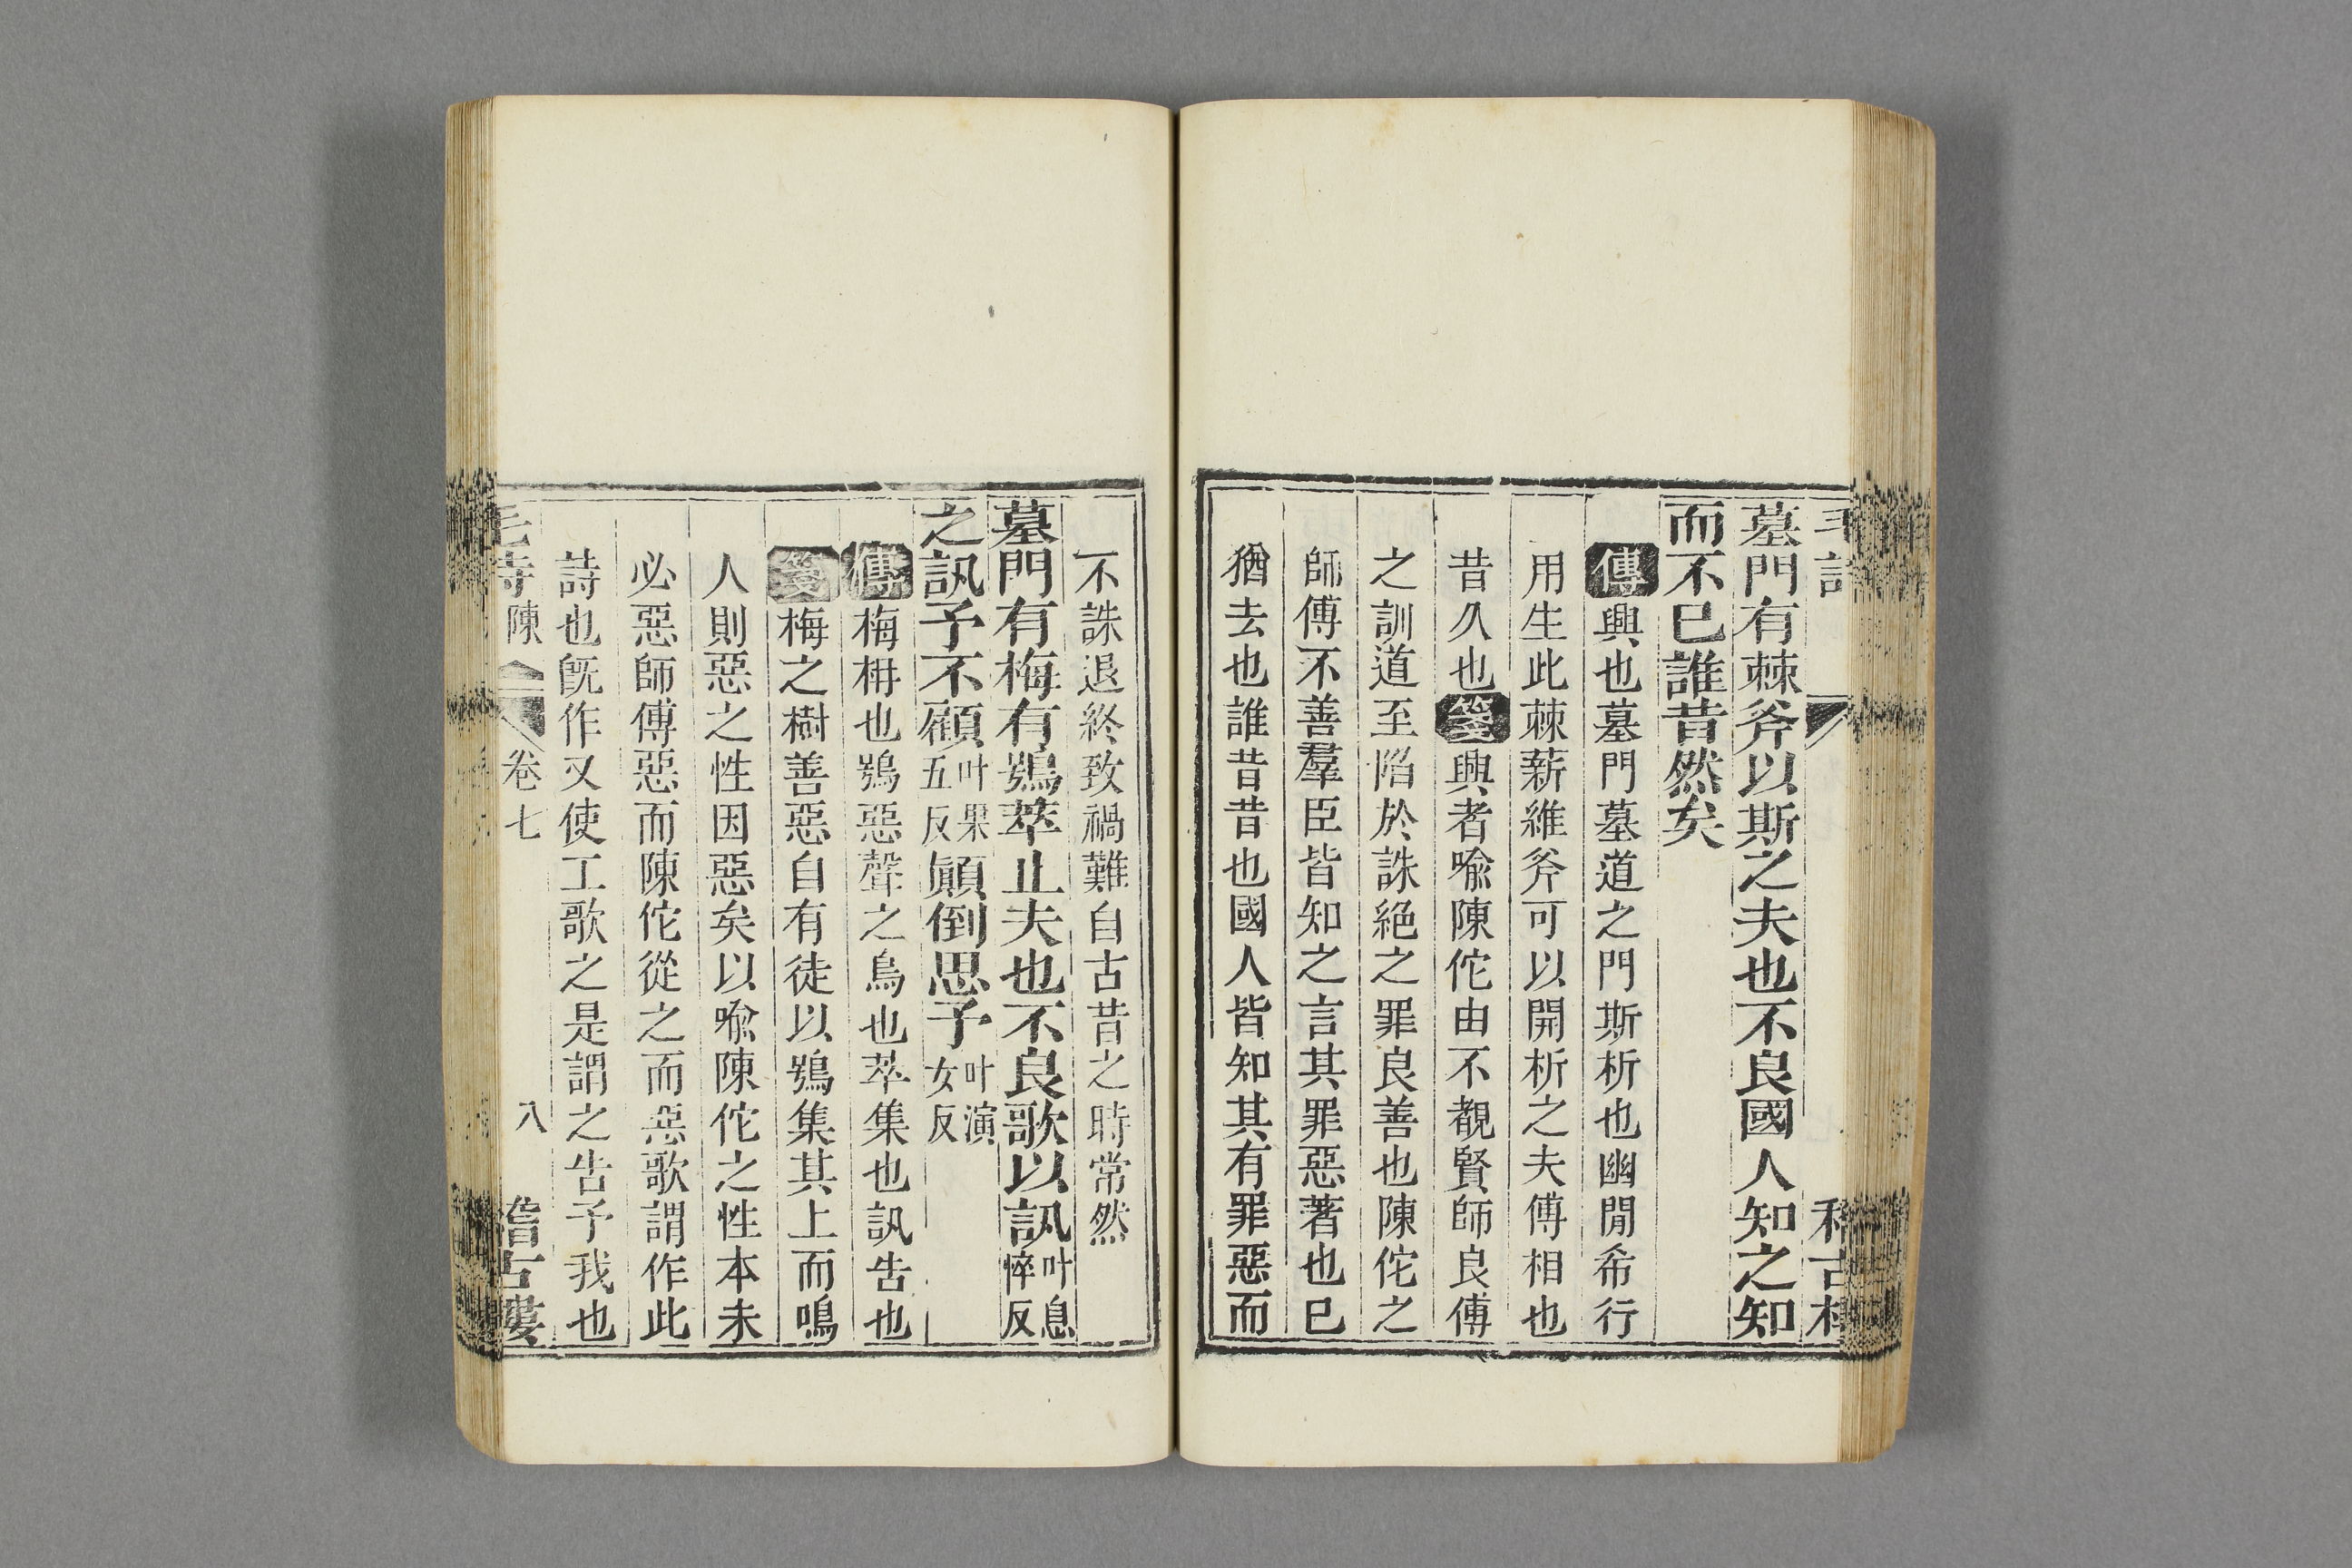 墓門有棘斧以斯之夫也不良國人知之知
而不已誰昔然矣
傳興也墓門墓道之門斯析也幽閒希行
用生此棘薪維斧可以開析之夫傅相也
昔久也箋興者喩陳佗由不覩賢師良傅
之訓道至陷於誅絕之罪良善也陳佗之
師傅不善羣臣皆知之言其罪惡著也已
猶去也誰昔昔也國人皆知其有罪惡而
不誅退終致禍難自古昔之時常然
墓門有梅有鴞萃止夫也不良歌以訊叶息悴反
之訊予不顧叶果五反顚倒思予叶演女反
傳梅柟也鴞惡聲之鳥也萃集也訊告也
箋梅之樹善惡自有徒以鴞集其上而鳴
人則惡之性因惡矣以喩陳佗之性本未
必惡師傅惡而陳佗從之而惡歌謂作此
詩也旣作又使工歌之是謂之告予我也
毛詩 陳 卷七 八 稽古樓